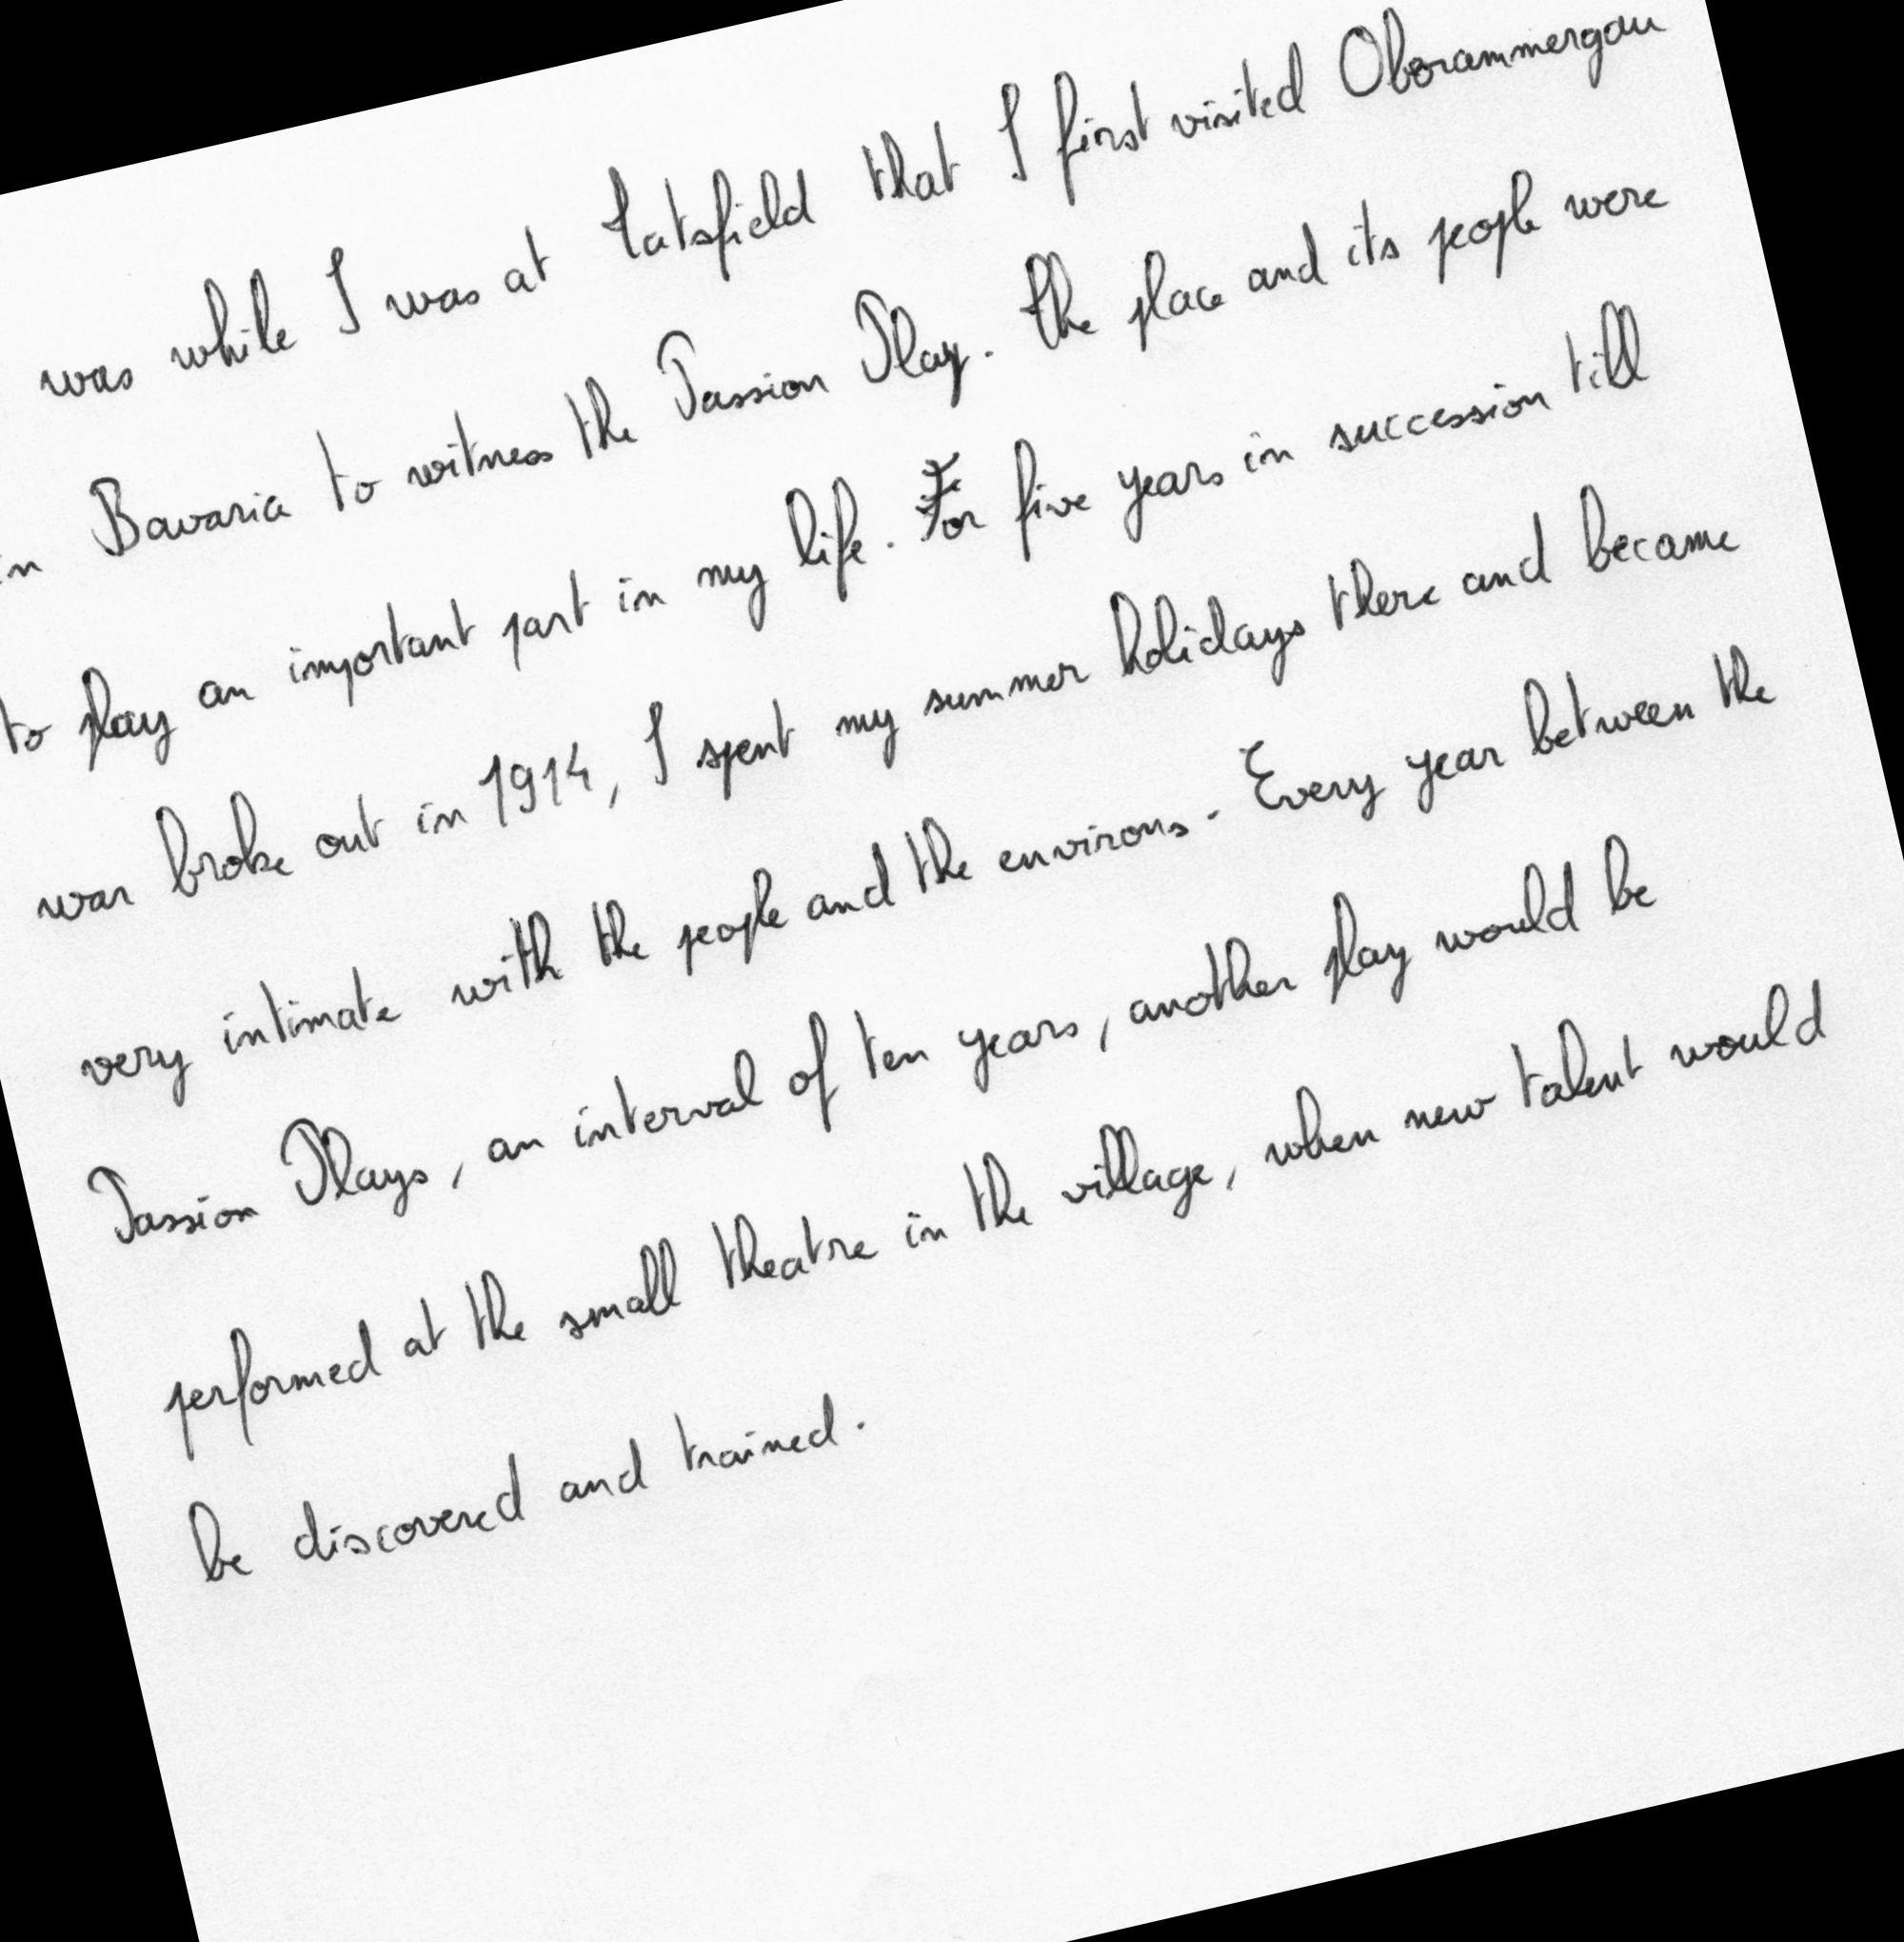 was while I was at Tatsfield that I first visited Oberammergau
in Bavaria to witness the Passion Play. The place and its people were
to play an important part in my life. For five years in succession till
war broke out in 1914, I spent my summer holidays there and became
very intimate with the people and the environs. Every year between the
Passion Plays, an interval of ten years, another play would be
performed at the small theatre in the village, when new talent would
be discovered and trained.